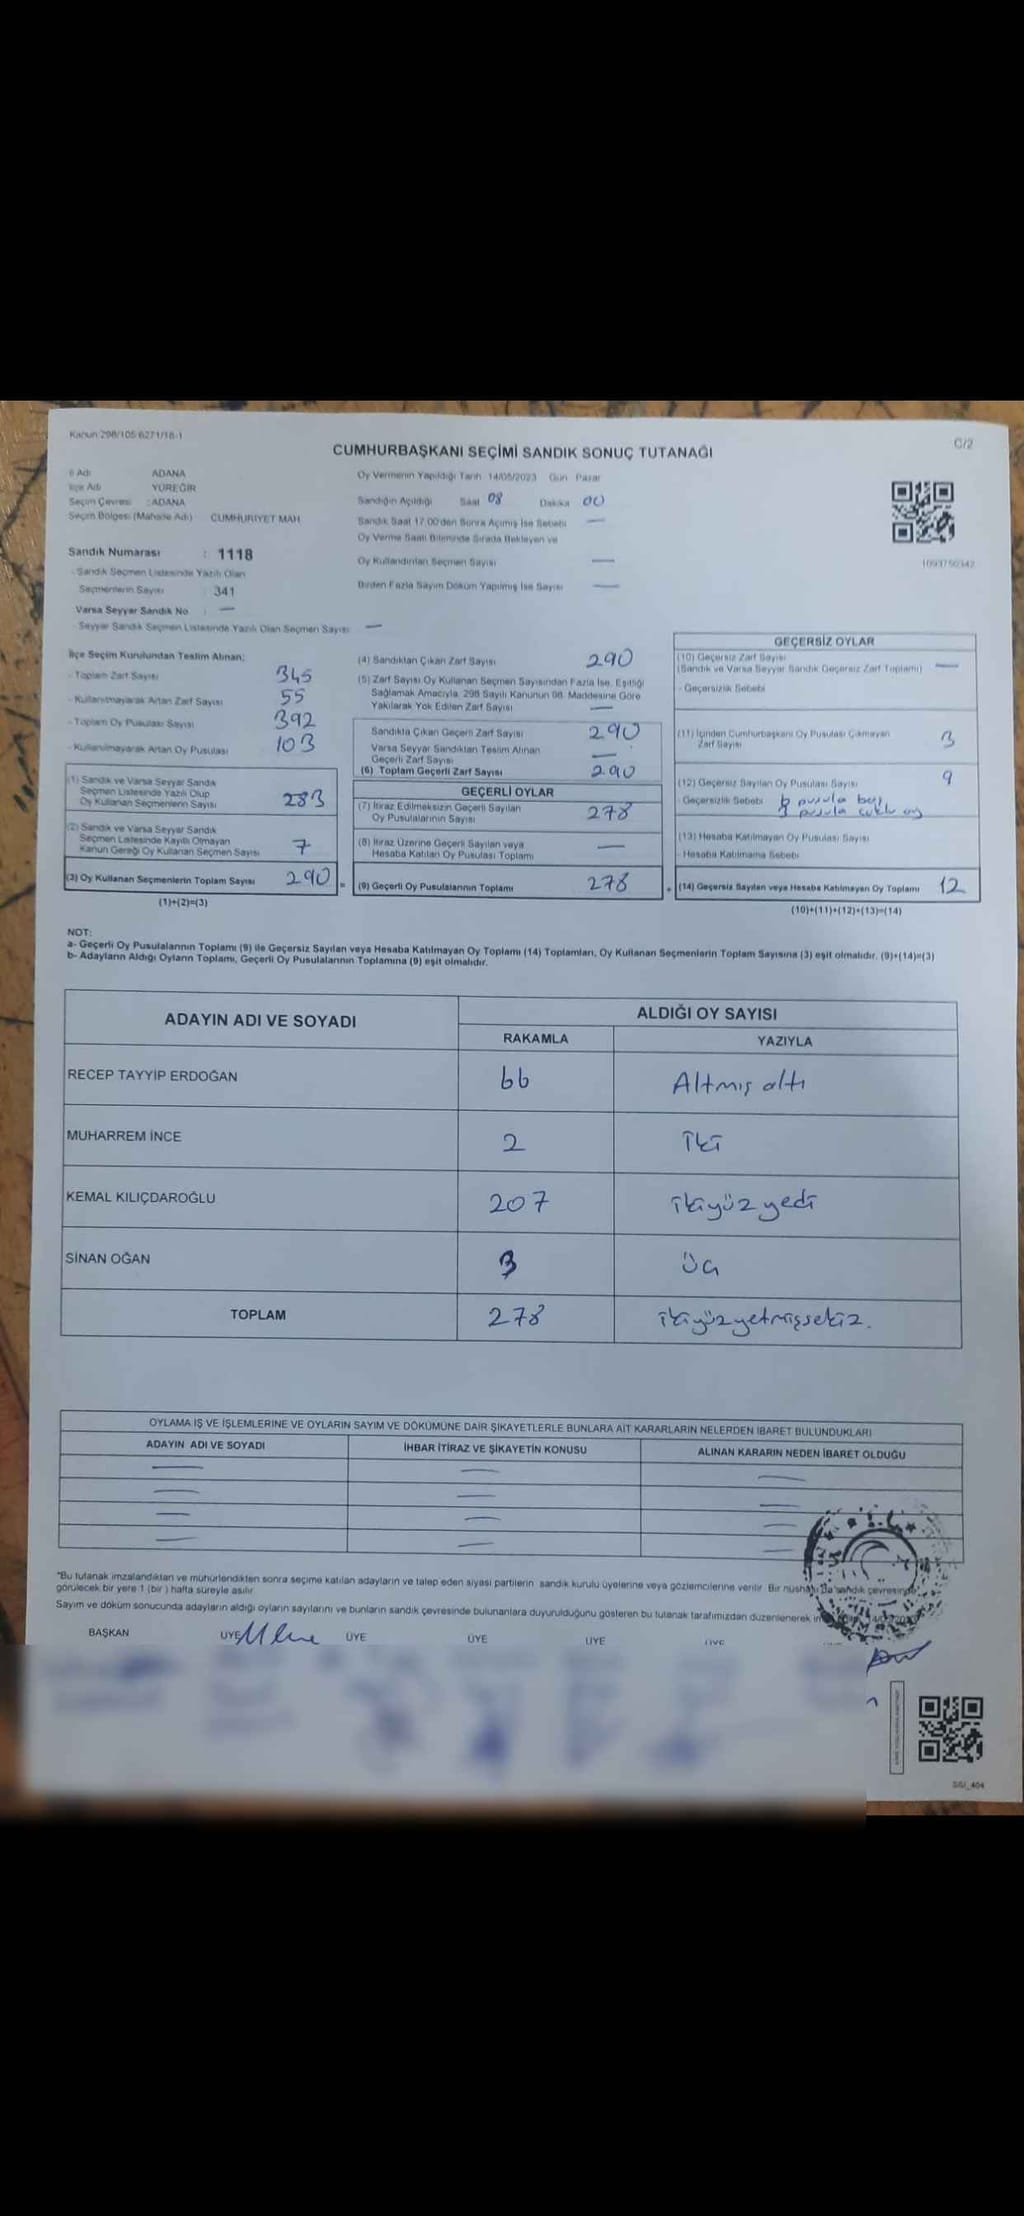 Kanun:298/105 6271/16-1
C/2
CUMHURBAŞKANI SEÇİMİ SANDIK SONUÇ TUTANAĞI
İl Adı ADANA
İlçe Adı YÜREĞİR
Seçim Çevresi : ADANA
Seçim Bölgesi (Mahalle Adı) CUMHURİYET MAH.
Sandık Numarası : 1118
- Sandık Seçmen Listesinde Yazılı Olan
Seçmenlerin Sayısı : 341
Varsa Seyyar Sandık No : —
- Seyyar Sandık Seçmen Listesinde Yazılı Olan Seçmen Sayısı —
Oy Vermenin Yapıldığı Tarih 14/05/2023 Gün Pazar
Sandığın Açıldığı Saat 08 Dakika 00
Sandık Saat 17.00'den Sonra Açılmış İse Sebebi —
Oy Verme Saati Bitiminde Sırada Bekleyen ve
Oy Kullandırılan Seçmen Sayısı —
Birden Fazla Sayım Döküm Yapılmış İse Sayısı —
1093750342
İlçe Seçim Kurulundan Teslim Alınan:
- Toplam Zarf Sayısı 345
- Kullanılmayarak Artan Zarf Sayısı 55
- Toplam Oy Pusulası Sayısı 392
- Kullanılmayarak Artan Oy Pusulası 103
(1) Sandık ve Varsa Seyyar Sandık
Seçmen Listesinde Yazılı Olup
Oy Kullanan Seçmenlerin Sayısı 283
(2) Sandık ve Varsa Seyyar Sandık
Seçmen Listesinde Kayıtlı Olmayan
Kanun Gereği Oy Kullanan Seçmen Sayısı 7
(3) Oy Kullanan Seçmenlerin Toplam Sayısı 290 =
(1)+(2)=(3)
(4) Sandıktan Çıkan Zarf Sayısı 290
(5) Zarf Sayısı Oy Kullanan Seçmen Sayısından Fazla İse, Eşitliği
Sağlamak Amacıyla, 298 Sayılı Kanunun 98. Maddesine Göre
Yakılarak Yok Edilen Zarf Sayısı —
Sandıkta Çıkan Geçerli Zarf Sayısı 290
Varsa Seyyar Sandıktan Teslim Alınan
Geçerli Zarf Sayısı —
(6) Toplam Geçerli Zarf Sayısı 290
GEÇERLİ OYLAR
(7) İtiraz Edilmeksizin Geçerli Sayılan
Oy Pusulalarının Sayısı 278
(8) İtiraz Üzerine Geçerli Sayılan veya
Hesaba Katılan Oy Pusulası Toplamı —
(9) Geçerli Oy Pusulalarının Toplamı 278 +
GEÇERSİZ OYLAR
(10) Geçersiz Zarf Sayısı
(Sandık ve Varsa Seyyar Sandık Geçersiz Zarf Toplamı) —
- Geçersizlik Sebebi
(11) İçinden Cumhurbaşkanı Oy Pusulası Çıkmayan
Zarf Sayısı 3
(12) Geçersiz Sayılan Oy Pusulası Sayısı 9
- Geçersizlik Sebebi pusula boş
pusula çoklu oy
(13) Hesaba Katılmayan Oy Pusulası Sayısı
- Hesaba Katılmama Sebebi
(14) Geçersiz Sayılan veya Hesaba Katılmayan Oy Toplamı 12
(10)+(11)+(12)+(13)=(14)
NOT:
a- Geçerli Oy Pusulalarının Toplamı (9) ile Geçersiz Sayılan veya Hesaba Katılmayan Oy Toplamı (14) Toplamları, Oy Kullanan Seçmenlerin Toplam Sayısına (3) eşit olmalıdır. (9)+(14)=(3)
b- Adayların Aldığı Oyların Toplamı, Geçerli Oy Pusulalarının Toplamına (9) eşit olmalıdır.
ADAYIN ADI VE SOYADI ALDIĞI OY SAYISI
RAKAMLA YAZIYLA
RECEP TAYYİP ERDOĞAN 66 Altmış altı
MUHARREM İNCE 2 iki
KEMAL KILIÇDAROĞLU 207 ikiyüz yedi
SİNAN OĞAN 3 üç
TOPLAM 278 ikiyüzyetmişsekiz.
OYLAMA İŞ VE İŞLEMLERİNE VE OYLARIN SAYIM VE DÖKÜMÜNE DAİR ŞİKAYETLERLE BUNLARA AİT KARARLARIN NELERDEN İBARET BULUNDUKLARI
ADAYIN ADI VE SOYADI İHBAR İTİRAZ VE ŞİKAYETİN KONUSU ALINAN KARARIN NEDEN İBARET OLDUĞU
— — —
— — —
— — —
— — —
*Bu tutanak imzalandıktan ve mühürlendikten sonra seçime katılan adayların ve talep eden siyasi partilerin sandık kurulu üyelerine veya gözlemcilerine verilir. Bir nüshası da sandık çevresinde
görülecek bir yere 1 (bir) hafta süreyle asılır.
Sayım ve döküm sonucunda adayların aldığı oyların sayılarını ve bunların sandık çevresinde bulunanlara duyurulduğunu gösteren bu tutanak tarafımızdan düzenlenerek
BAŞKAN ÜYE ÜYE ÜYE ÜYE ÜYE
SGI_404